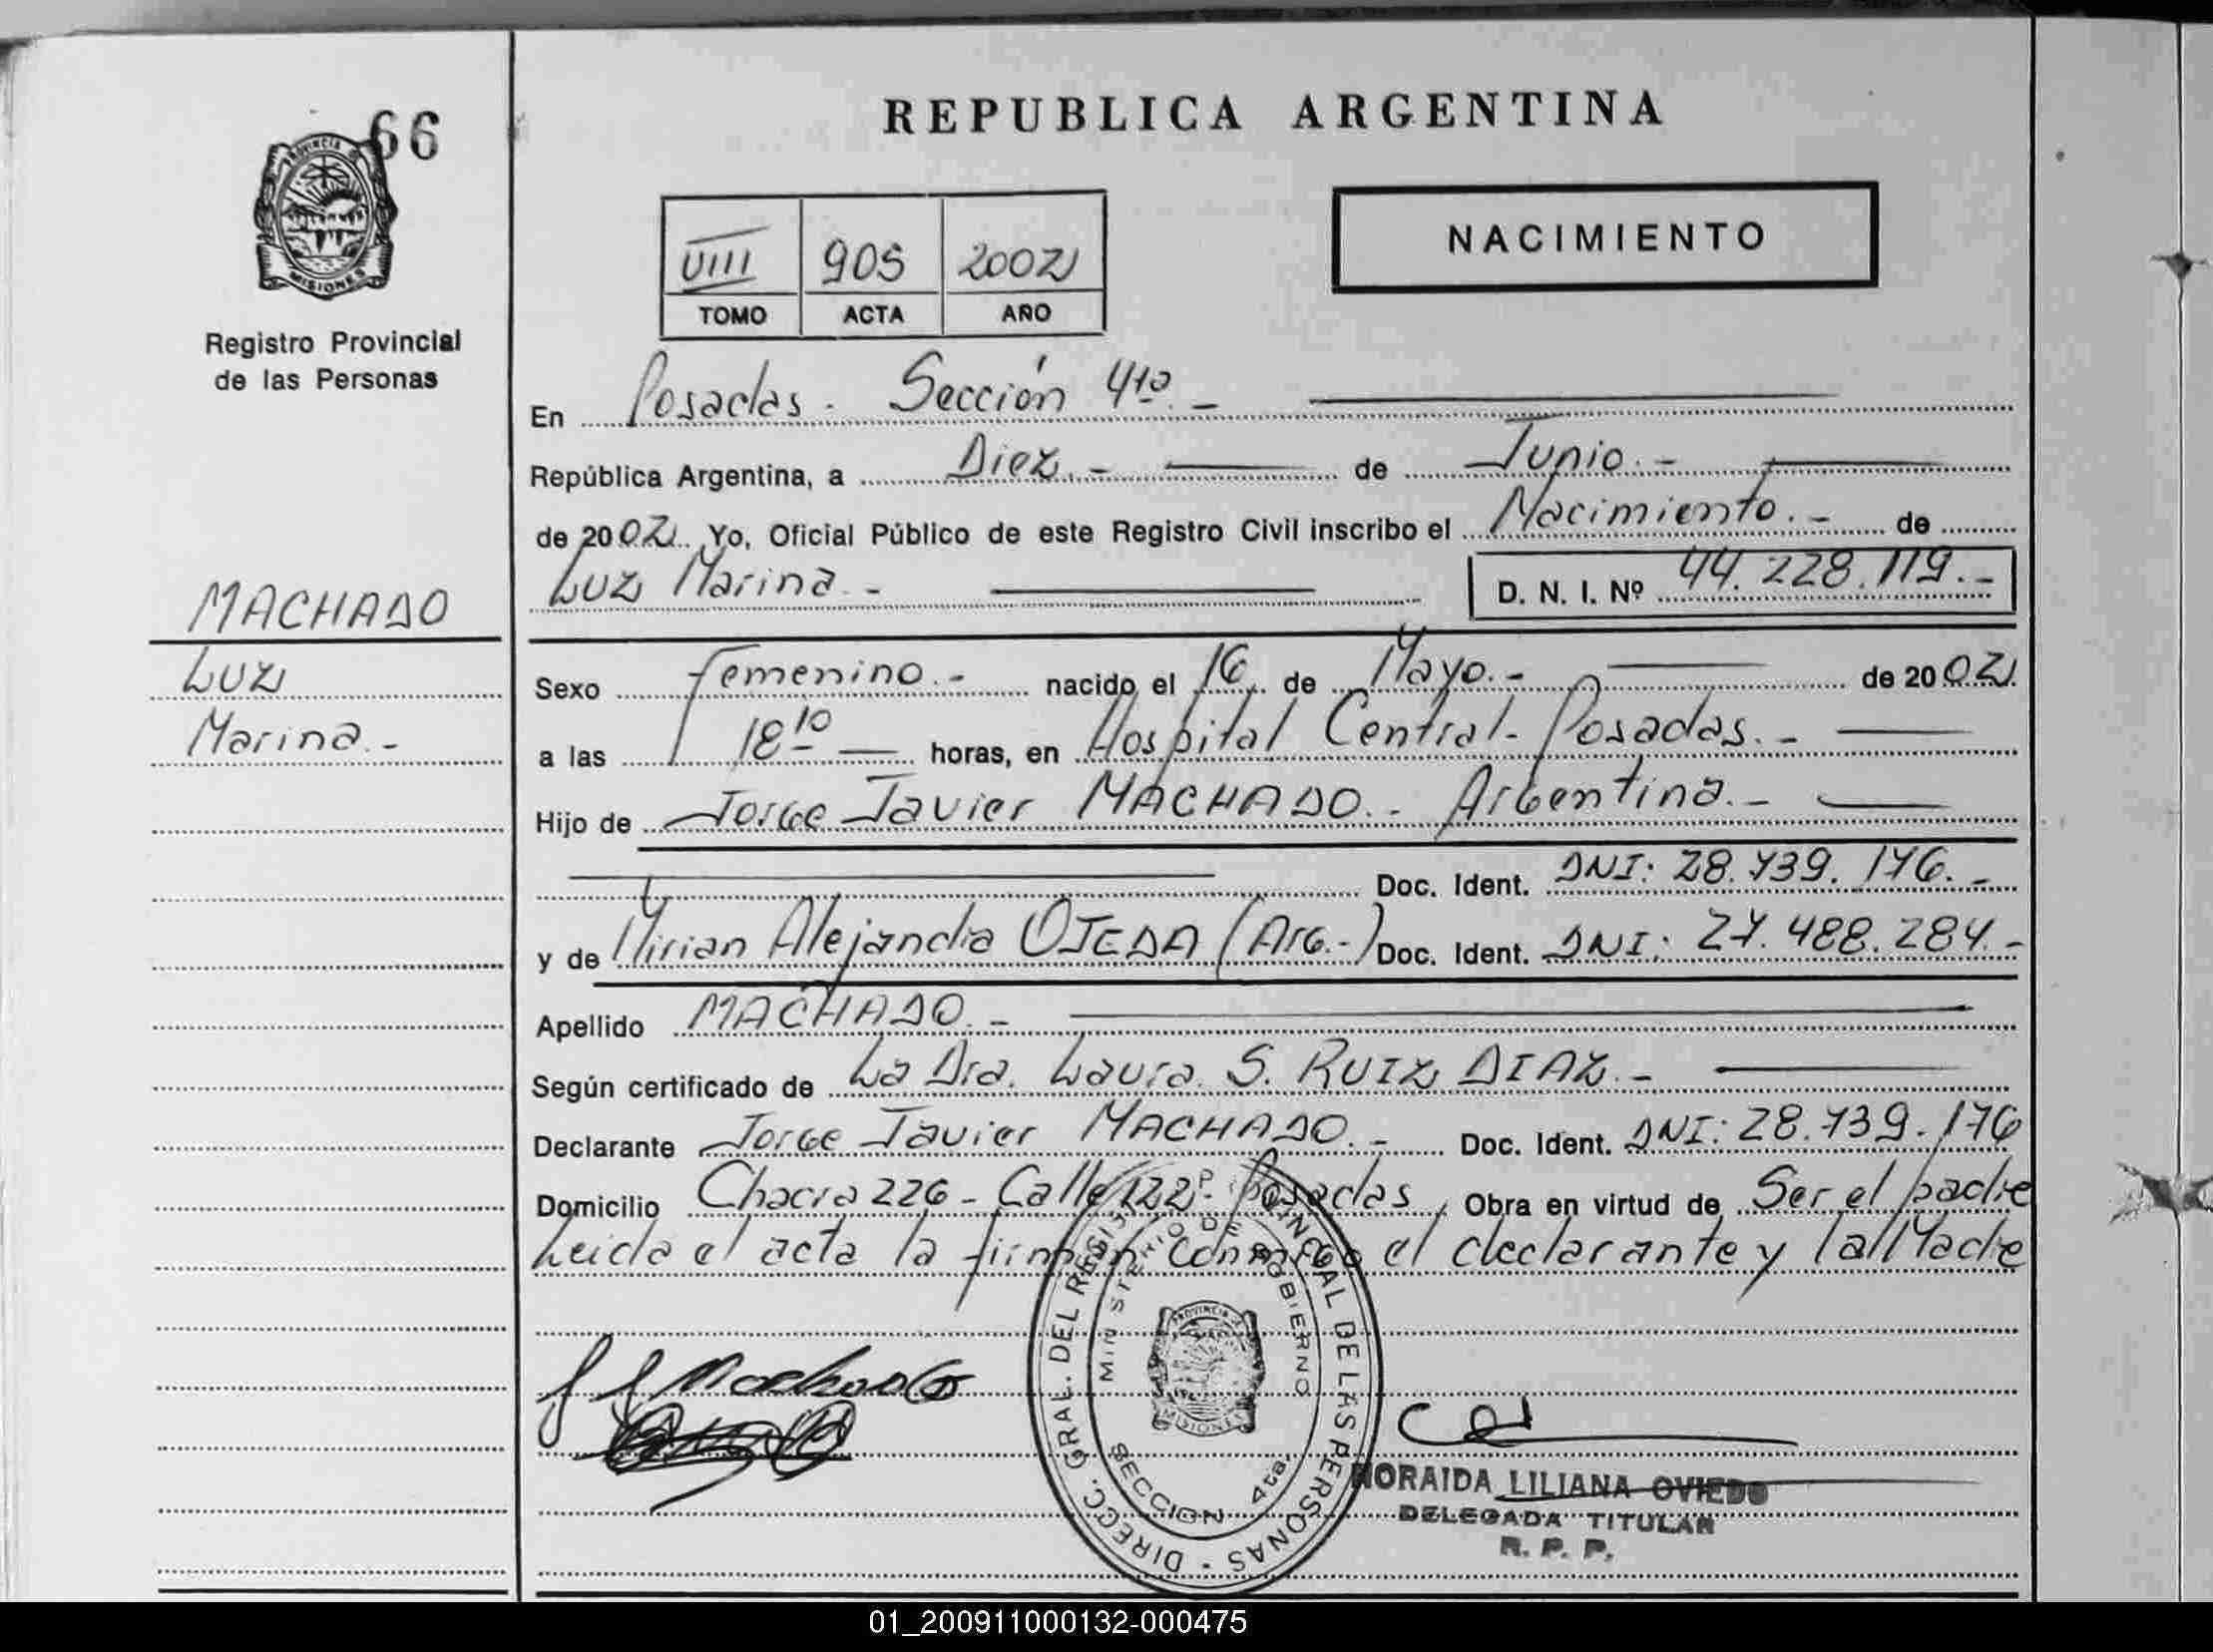 66
PROVINCIA DE MISIONES
Registro Provincial
de las Personas
MACHADO
Luz
Marina.-
REPUBLICA ARGENTINA
VIII 905 2002
TOMO ACTA AÑO
NACIMIENTO
En Posadas. Sección 4ta.-
República Argentina, a Diez.- de Junio.-
de 2002. Yo, Oficial Público de este Registro Civil inscribo el Nacimiento.- de
Luz Marina.- D. N. I. Nº 44.228.119.-
Sexo Femenino.- nacido el 16 de Mayo.- de 2002.
a las 18 10 horas, en Hospital Central- Posadas.-
Hijo de Jorge Javier MACHADO.- Argentina.-
Doc. Ident. DNI: 28.739.176.-
y de Mirian Alejandra OJEDA (Arg.-) Doc. Ident. DNI: 27.488.284.-
Apellido MACHADO.-
Según certificado de La Dra. Laura S. RUIZ DIAZ.-
Declarante Jorge Javier MACHADO.- Doc. Ident. DNI: 28.739.176
Domicilio Chacra 226 - Calle 122- Posadas, Obra en virtud de Ser el padre
Leida el acta la firman conmigo el declarante y la Madre
J J Machado
DIRECC. GRAL. DEL REGISTRO PROVINCIAL DE LAS PERSONAS
MINISTERIO DE GOBIERNO
PROVINCIA DE MISIONES
SECCION 4ta.
NORAIDA LILIANA OVIEDO
DELEGADA TITULAR
R. P. P.
01_200911000132-000475